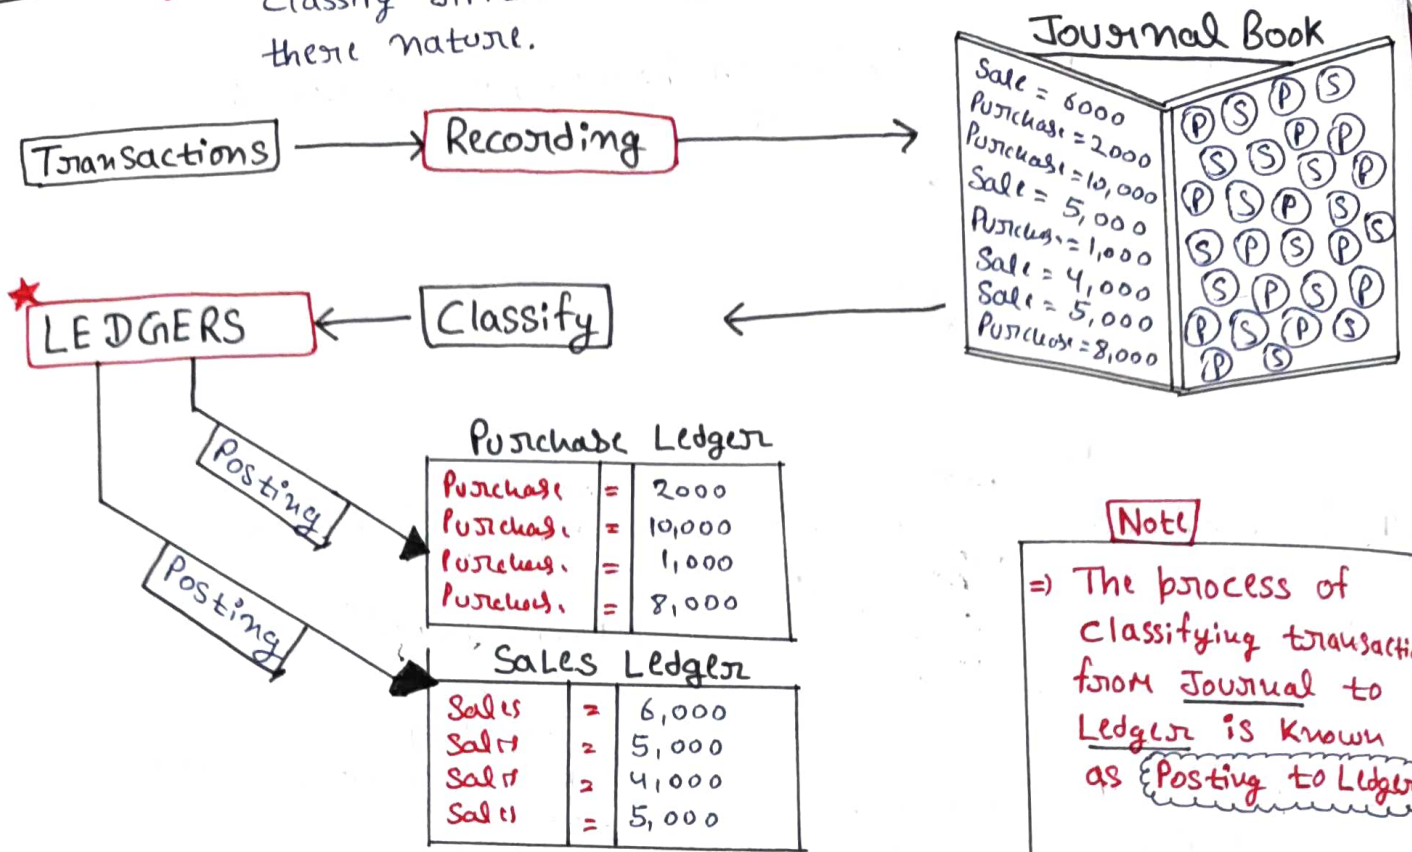 Classify
there nature.
Journal Book
Transactions
Recording
Sale = 6000
Purchase = 2000
Purchase = 10,000
Sale = 5,000
Purchas. = 1,000
Sale = 4,000
Sale = 5,000
Purchase = 8,000
P S P S
P P
S S S P
P S P S
S
S P S P
S P S P
P S P S
P S
LEDGERS
Classify
Posting
Posting
Purchase Ledger
Purchase = 2000
Purchas. = 10,000
Purchas. = 1,000
Purchas. = 8,000
Sales Ledger
Sales = 6,000
Sales = 5,000
Sales = 4,000
Sales = 5,000
Note
=) The process of
Classifying transacti
from Journal to
Ledger is Known
as Posting to Ledger